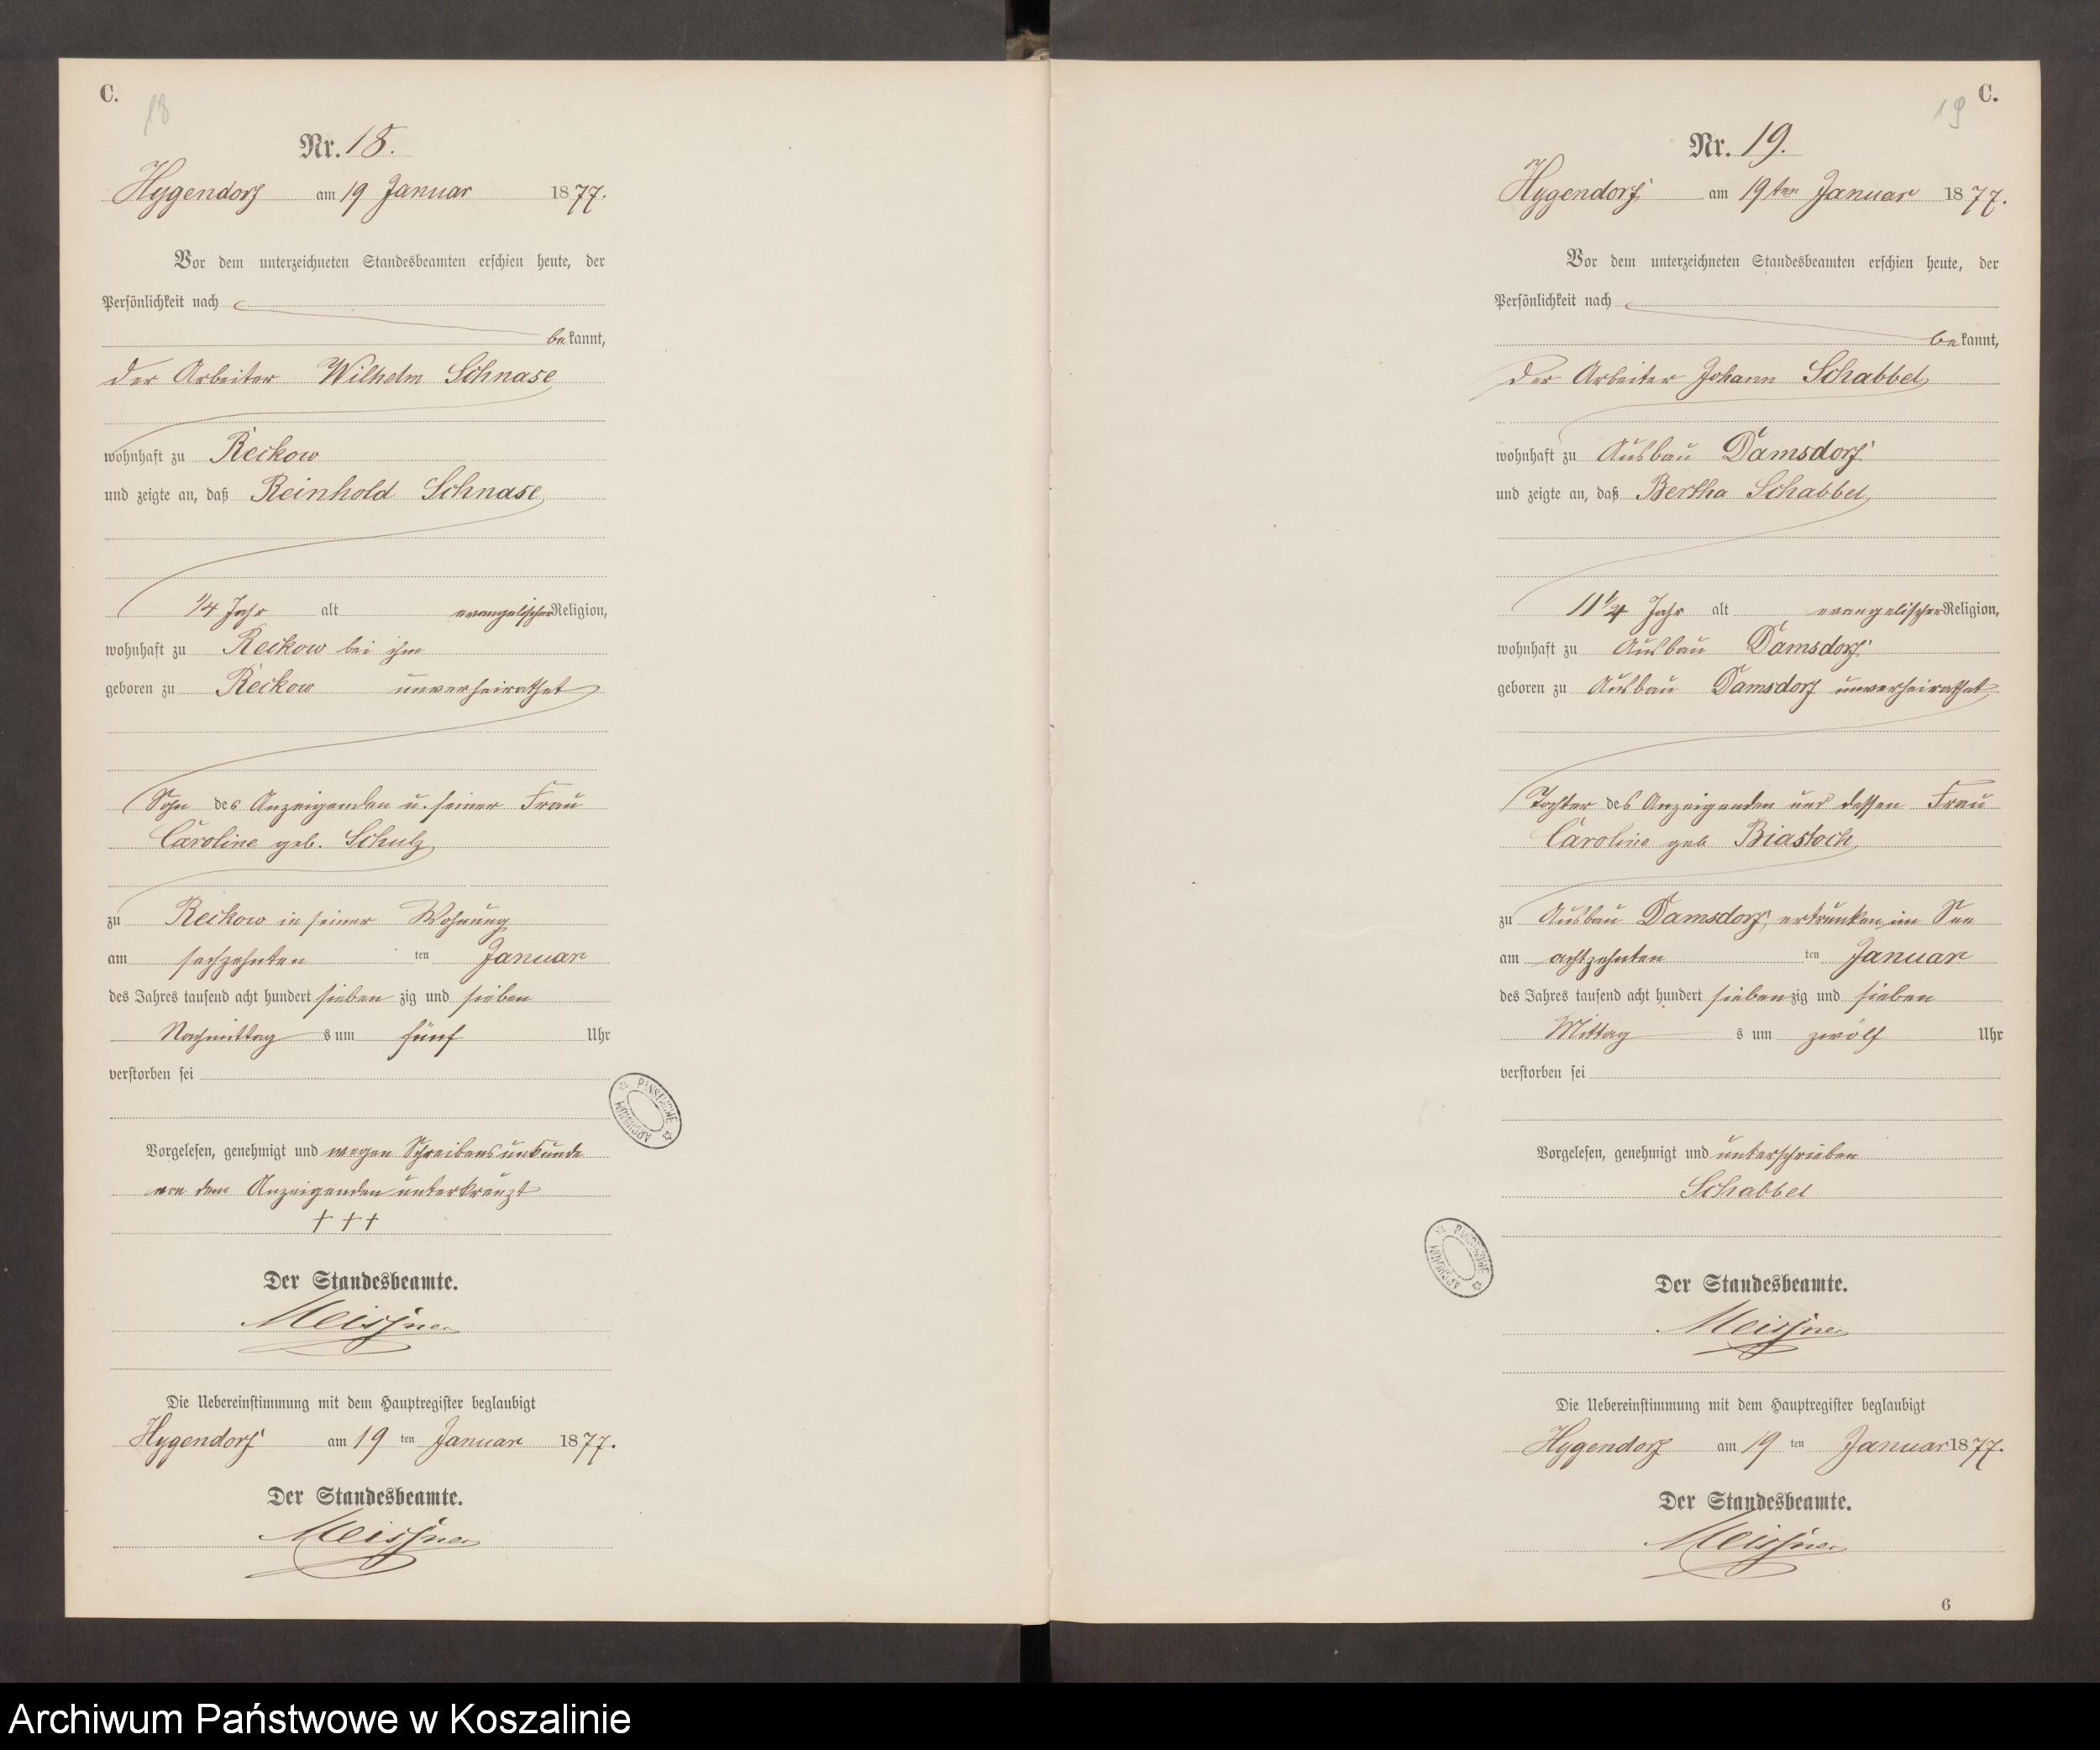 C.
18
Nr. 18.
Hygendorf am 19 Januar 1877.
Vor dem unterzeichneten Standesbeamten erschien heute, der
Persönlichkeit nach
bekannt,
der Arbeiter Wilhelm Schnase
wohnhaft zu Reckow
und zeigte an, daß Reinhold Schnase
1/4 Jahr alt evangelischer Religion,
wohnhaft zu Reckow bei ihm
geboren zu Reckow unverheirathet
Sohn des Anzeigenden u. seiner Frau
Caroline geb. Schulz
zu Reckow in seiner Wohnung
am sechzehnten ten Januar
des Jahres tausend acht hundert siebenzig und sieben
Nachmittags um fünf Uhr
verstorben sei
Vorgelesen, genehmigt und wegen Schreibensunkunde
von dem Anzeigenden unterkreuzt
† † †
Der Standesbeamte.
Meissner
Die Uebereinstimmung mit dem Hauptregister beglaubigt
Hygendorf am 19 ten Januar 1877.
Der Standesbeamte.
Meissner
ARCHIWUM PAŃSTWOWE
C.
19
Nr. 19.
Hygendorf am 19ten Januar 1877.
Vor dem unterzeichneten Standesbeamten erschien heute, der
Persönlichkeit nach
bekannt,
der Arbeiter Johann Schabbel
wohnhaft zu Ausbau Damsdorf
und zeigte an, daß Bertha Schabbel
11 1/4 Jahr alt evangelischer Religion,
wohnhaft zu Ausbau Damsdorf
geboren zu Ausbau Damsdorf unverheirathet
Tochter des Anzeigenden und dessen Frau
Caroline geb Biastoch
zu Ausbau Damsdorf, ertrunken im See
am achtzehnten ten Januar
des Jahres tausend acht hundert siebenzig und sieben
Mittags um zwölf Uhr
verstorben sei
Vorgelesen, genehmigt und unterschrieben
Schabbel
Der Standesbeamte.
Meissner
Die Uebereinstimmung mit dem Hauptregister beglaubigt
Hygendorf am 19 ten Januar 1877.
Der Standesbeamte.
Meissner
6
ARCHIWUM PAŃSTWOWE
Archiwum Państwowe w Koszalinie